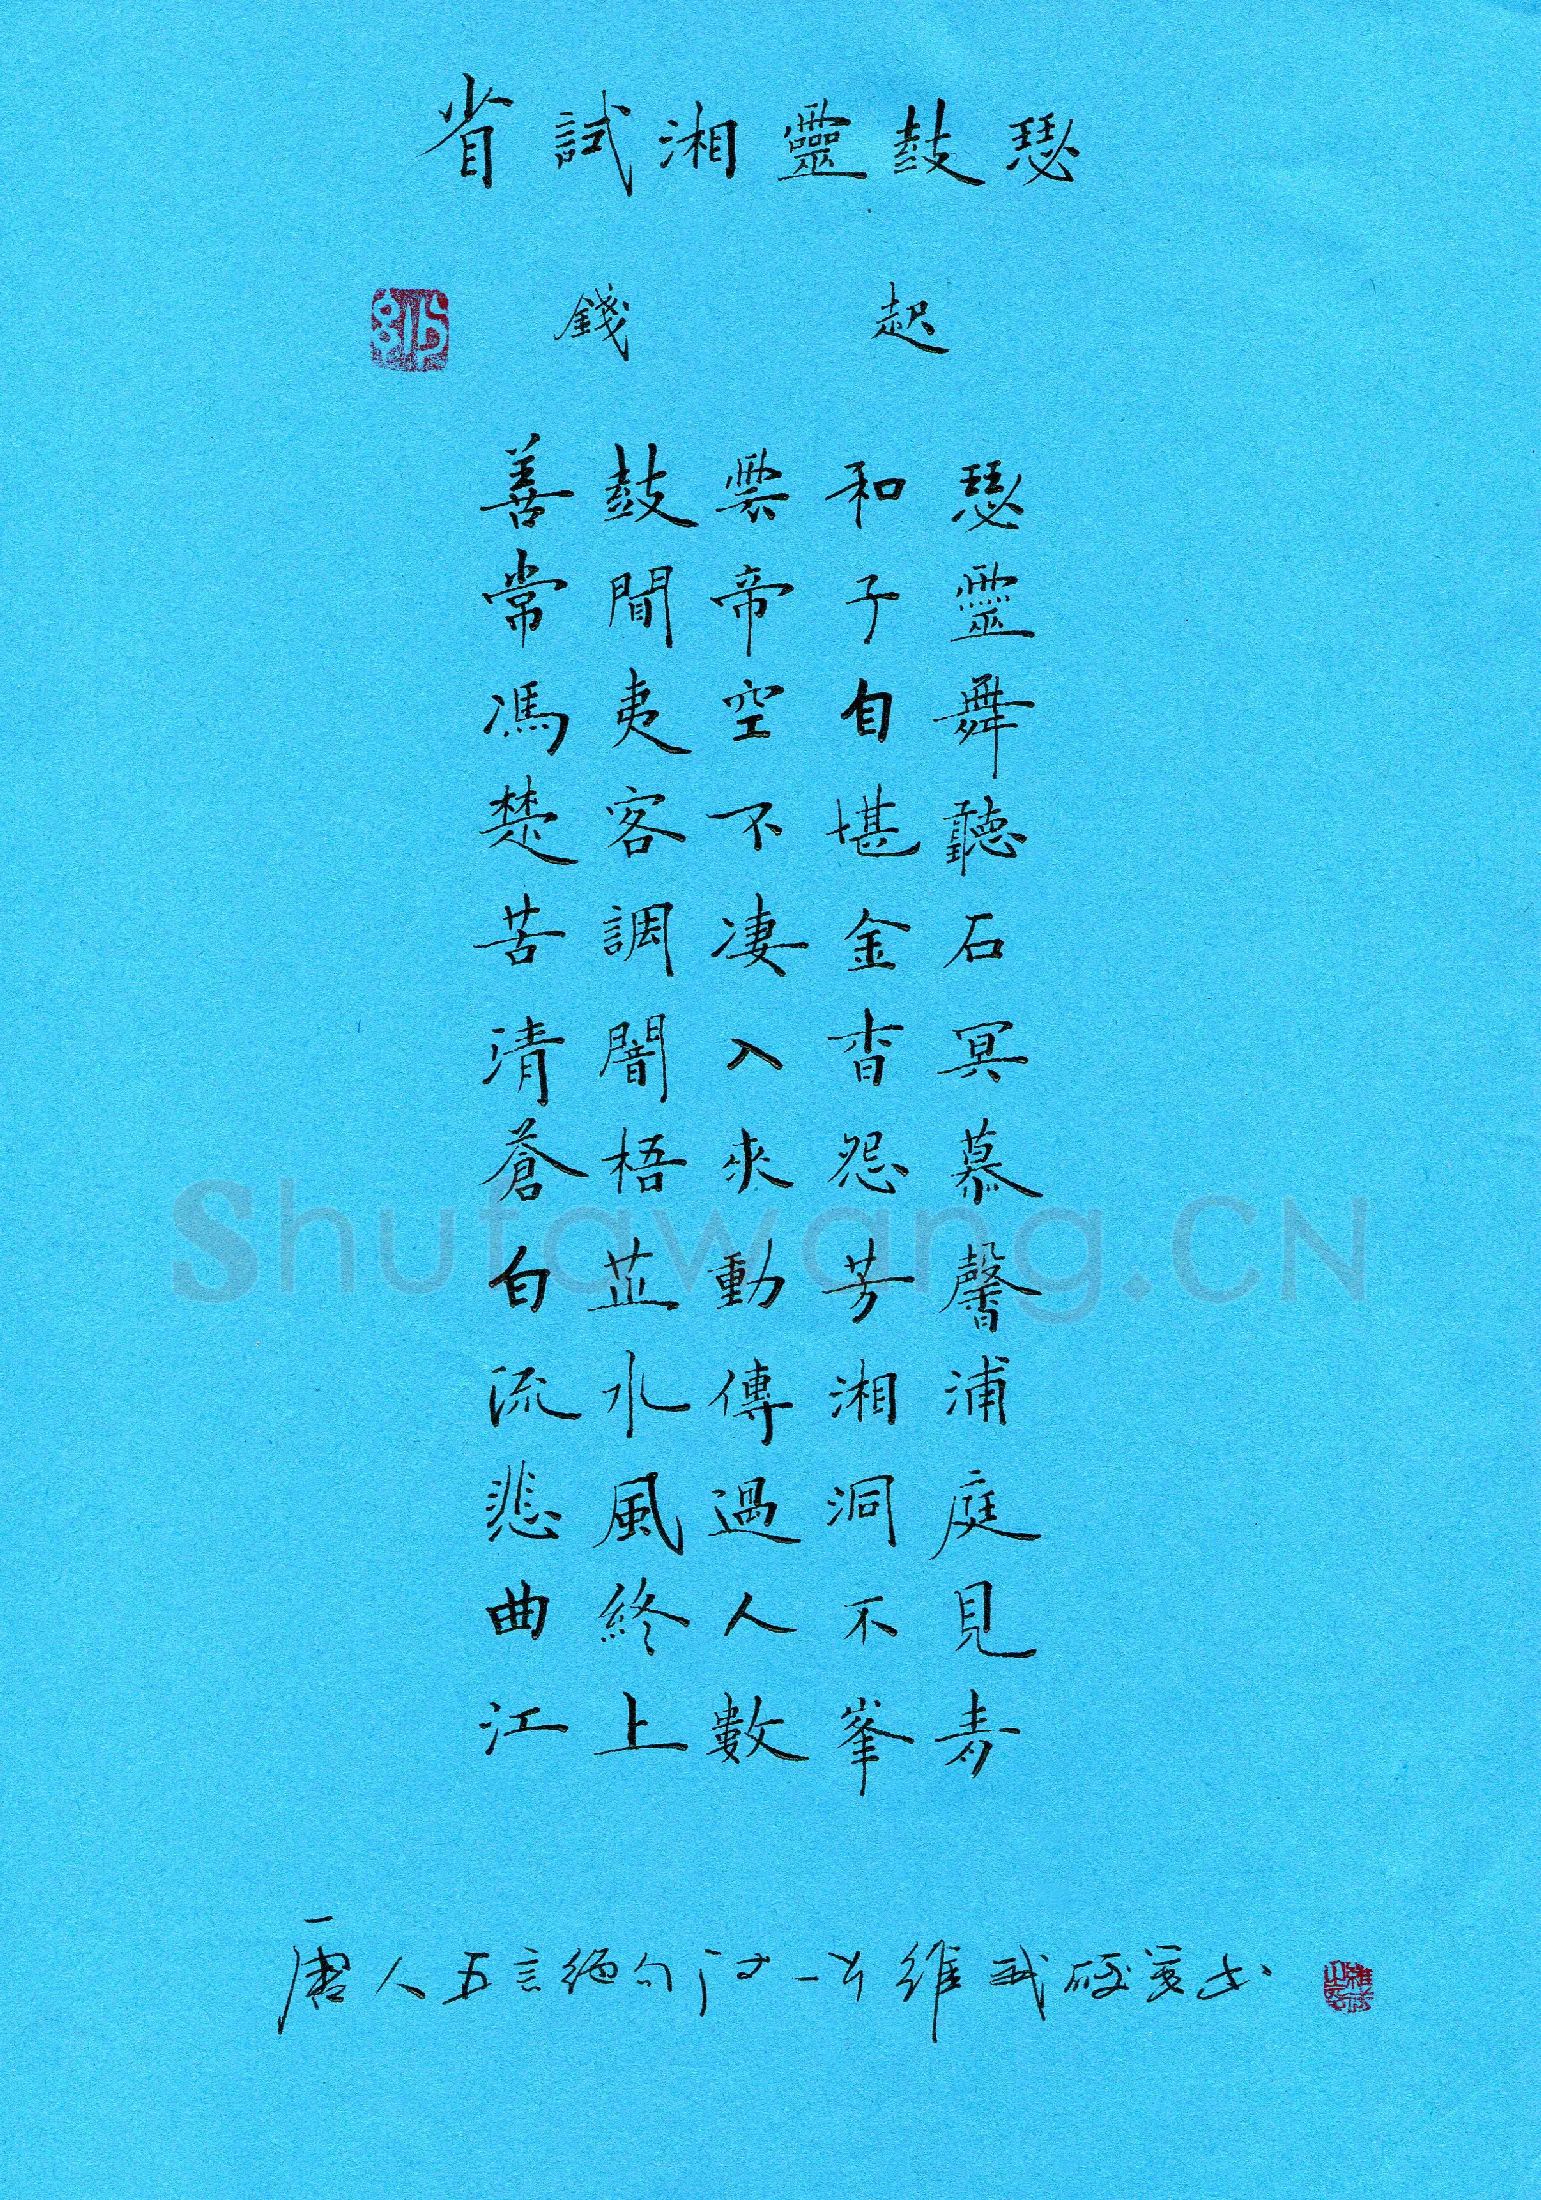 省試湘靈鼓瑟
錢起
善鼓雲和瑟
常聞帝子靈
馮夷空自舞
楚客不堪聽
苦調凄金石
清闇入杳冥
蒼梧來怨慕
白芷動芳馨
流水傳湘浦
悲風過洞庭
曲終人不見
江上數峯青
唐人五言絕句
Shufawang.CN